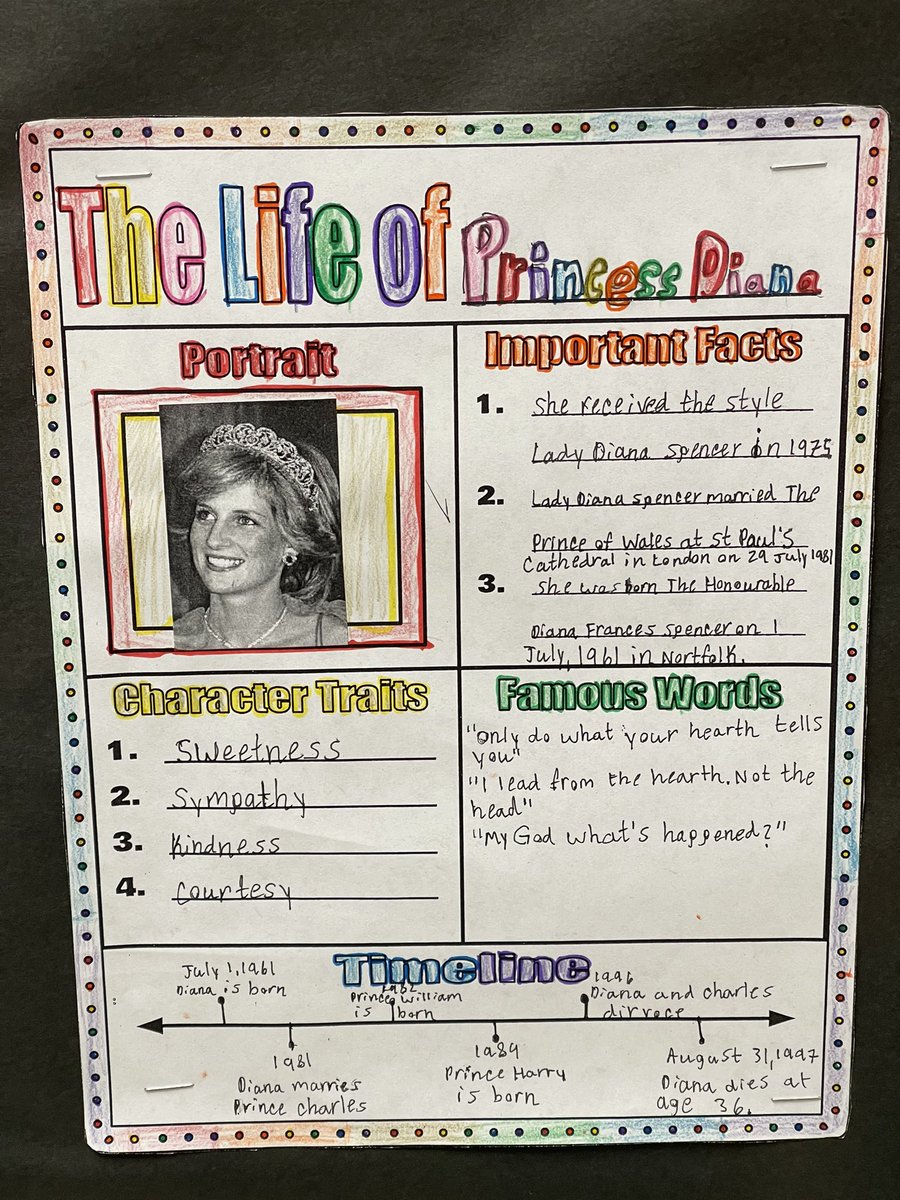 The Life of Princess Diana
Portrait
Important Facts
1. She received the style
Lady Diana spencer in 1975
2. Lady Diana spencer married The
Prince of Wales at St Paul's
Cathedral in London on 29 July 1981
3. She was born The Honourable
Diana Frances spencer on 1
July, 1961 in Nortfolk.
Character Traits
1. Sweetness
2. Sympathy
3. Kindness
4. Courtesy
Famous Words
"only do what your hearth tells
you"
"I lead from the hearth. Not the
head"
"My God what's happened?"
Timeline
July 1, 1961
Diana is born
1981
Diana marries
Prince charles
1982
Prince william
is born
1984
Prince Harry
is born
1996
Diana and charles
dirvoce
August 31, 1997
Diana dies at
age 36.